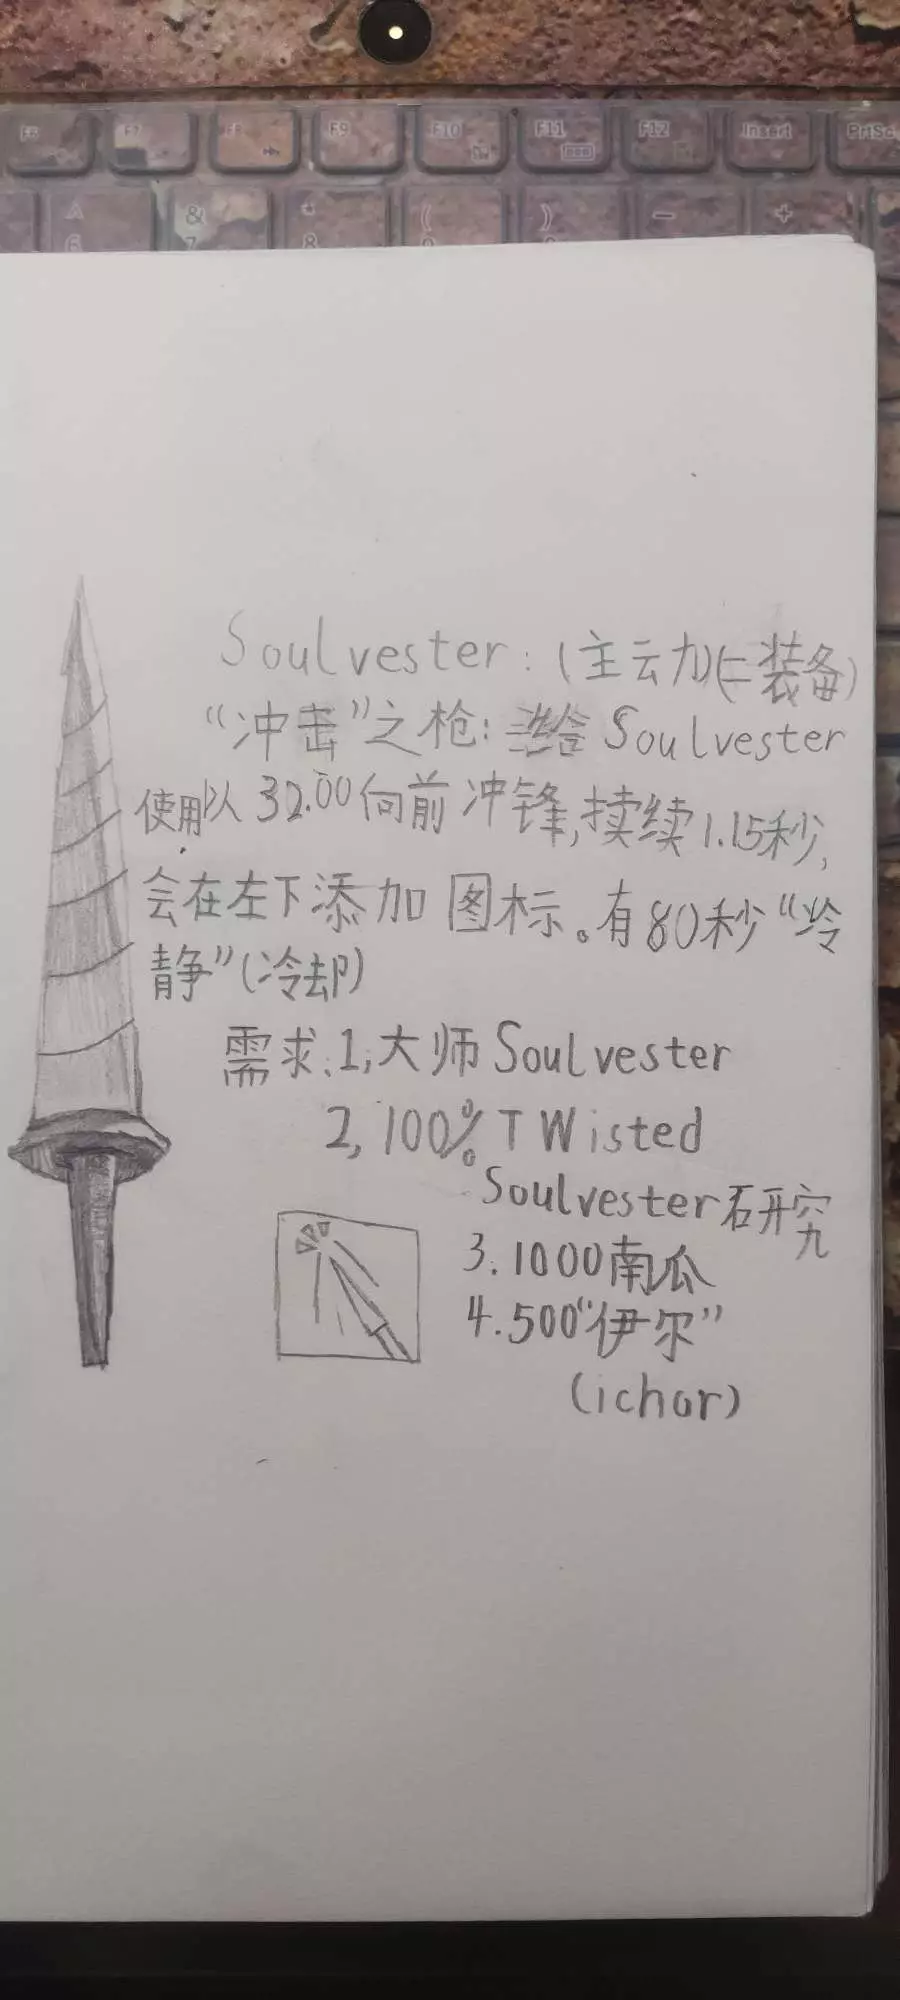 F6 F7 F8 F9 F10 F11 F12 Insert PrtSc
^ & * ( ) - +
6 7 8 9
Soulvester: (主动)(=装备)
“冲击”之枪: 给 Soulvester
使用以 32.00 向前冲锋,持续1.15秒,
会在左下添加 图标。有80秒“冷
静”(冷却)
需求:1,大师 Soulvester
2,100% TWisted
Soulvester研究
3.1000南瓜
4.500“伊尔”
(ichor)